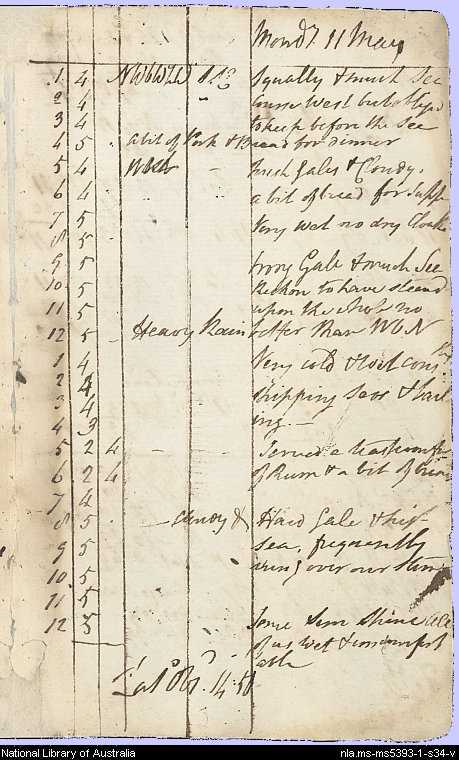 Mondy. 11 May
1 4 NWbW½W 113 Squally & much Sea
2 4 Course West but oblig'd
3 4 to keep before the Sea
4 5 a bit of Pork & Bread for dinner
5 4 fresh Gales & Cloudy.
6 4 a bit of bread for Supp
7 5 Very wet no dry Cloaths
8 5
9 5 Strong Gale & much Sea
10 5 Reckon to have steerd
11 5 upon the whole no
12 5 Heavy Rain better than WbN
1 4 Very cold & wet cons
2 4 shipping Seas & bail
3 4 ing. —
4 3
5 2 4 — — Served a teaspoonfu
6 2 4 of Rum & a bit of brea
7 4
8 5 — Cloudy & Hard Gale & high
9 5 Sea, frequently
10 5 runs over our Stern
11 5
12 5 Some Sun Shine all
of us wet & uncomfort
able
Lat Obd. 14:50
National Library of Australia
nla.ms-ms5393-1-s34-v